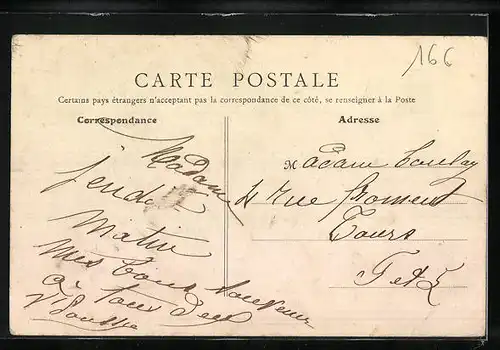 166
CARTE POSTALE
Certains pays étrangers n'acceptant pas la correspondance de ce côté, se renseigner à la Poste
Correspondance
Adresse
Madame
Jendi
Matin
Mes
a tous deux
Madam
4 Rue Froment
Tours
I et L